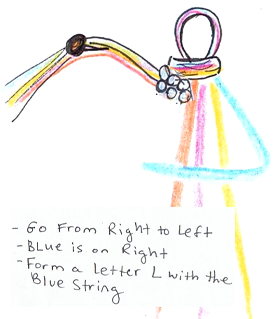 - Go From Right to Left
- BLue is on Right
- Form a Letter L with the
Blue String